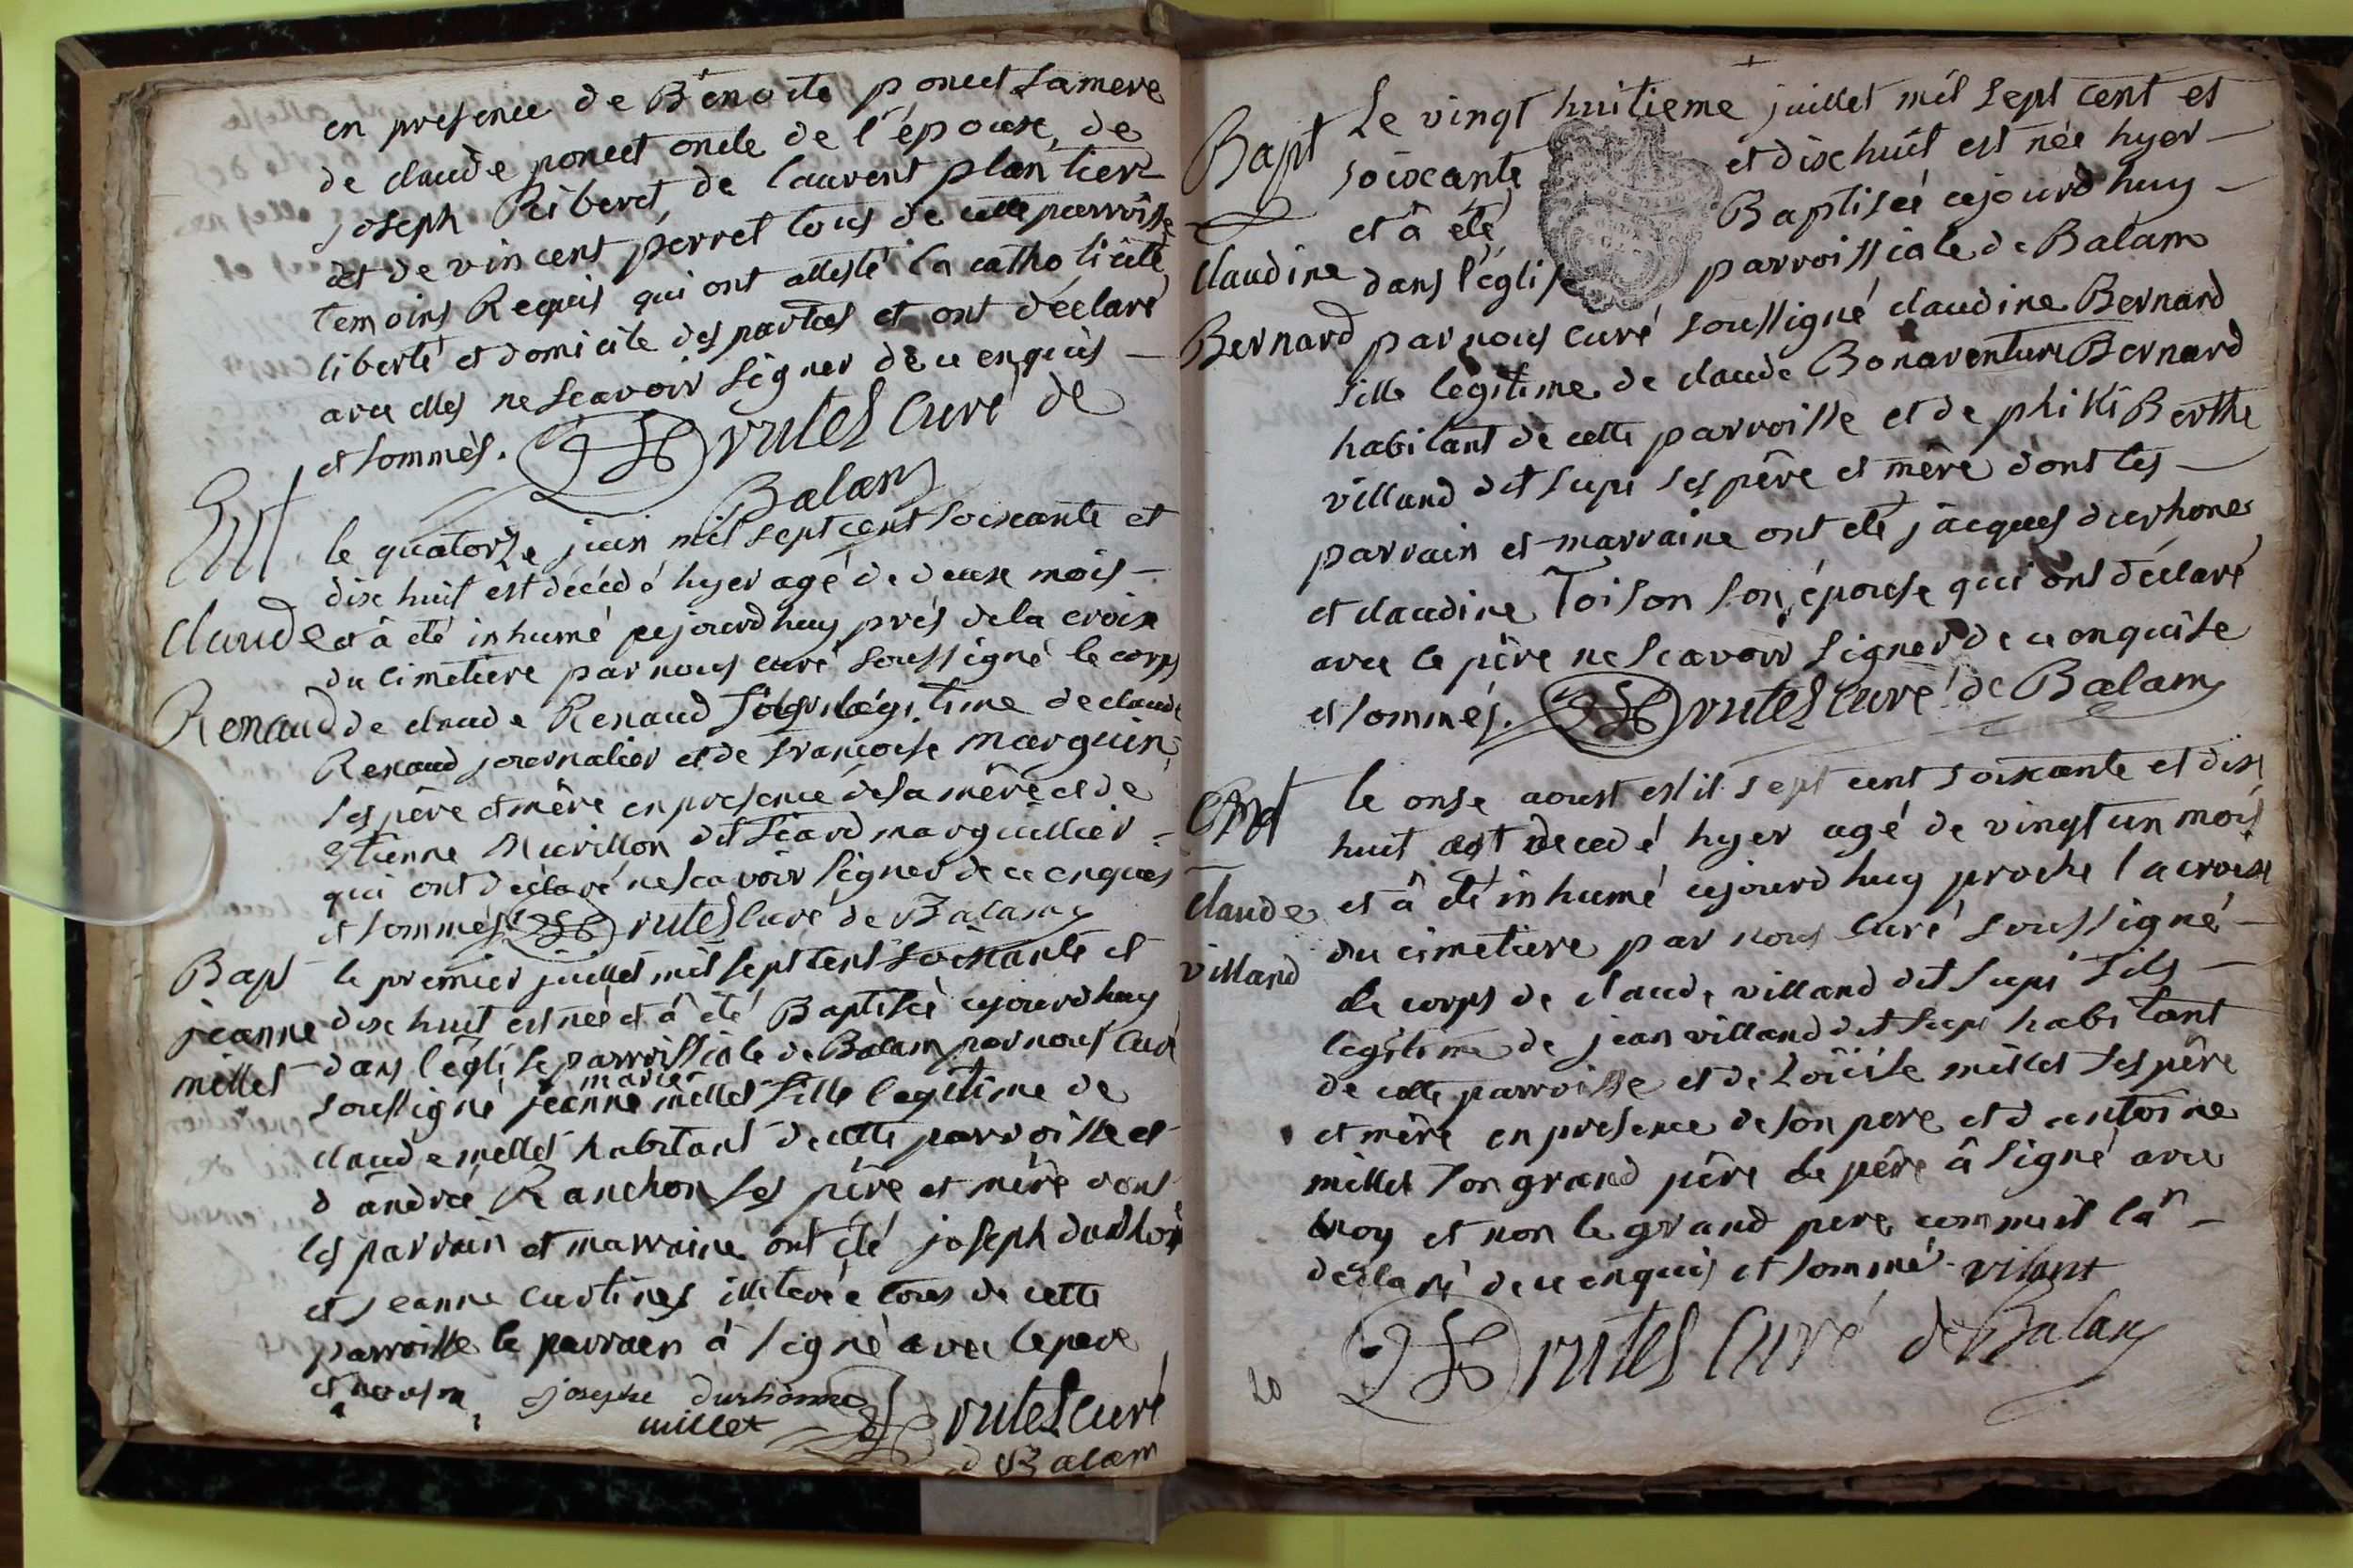 en presence de Benoite poncet sa mere
de claude poncet oncle de l'épouse, de
joseph Riberet, de laurent plantier
et de vincent perret tous de cette parroisse
temoins Requis qui ont attesté la catholicité
liberté et domicile des parties et ont déclaré
avec elles ne scavoir signer de ce enquis
et sommés. rutes Curé de
Balan
Ent le quatorze juin mil sept cent soixante et
dix huit est décédé hyer agé de deux mois
claude et â été inhumé aujourdhuy prés de la croix
du cimetiere par nous curé soussigné le corps
Renaud de claude Renaud fils légitime de claude
Renaud journalier et de francoise marguin
ses père et mère en presence de sa mère et de
Etienne Murillon dit Siard marguillier
qui ont déclaré ne scavoir signer de ce enquis
et sommés. rutes curé de Balan
Bap le premier juillet mil sept cent soixante et
jeanne dix huit est née et â été Baptisée aujourdhuy
millet dans l'église parroissiale de Balan par nous curé
marie
soussigné jeanne millet fille legitime de
claude millet habitant de cette parroisse et
d'andrée Ranchon ses père et mère dont
les parrain et marraine ont été joseph durhône
et jeanne curtines illiterée tous de cette
parroisse le parrain à signé avec le pere
et
josephe durhonne
millet rutes curé
d Balan
Bapt Le vingt huitieme juillet mil sept cent et
soixante et dix huit est née hyer
et â été Baptiseé aujourdhuy
claudine dans l'église parroissiale de Balam
Bernard par nous curé soussigné claudine Bernard
fille legitime de claude Bonaventure Bernard
habitant de cette parroisse et de Berthe
villand dit supi ses père et mère dont les
parrain et marraine ont été jâcques durhone
et claudine Toison son épouse qui ont déclaré
avec le père ne scavoir signer de ce enquise
et sommés. rutes curé de Balam
Ent le onze aoust mil sept cent soixante et dix
huit est decedé hyer agé de vingt un mois
claude et â été inhumé aujourdhuy proche la croix
du cimetiere par nous curé soussigné
villand le corps de claude villand dit supi fils
legitime de jean villand dit supi habitant
de cette parroisse et de Loüise millet ses père
et mère en presence de son pere et d'antoine
millet son grand père le père â signé avec
moy et non le grand pere comme il l'a
déclaré de ce enquis et sommé. vilant
rutes Curé de Balan
20